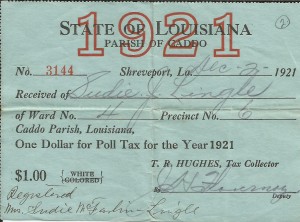 1921
STATE OF LOUISIANA
PARISH OF CADDO
No. 3144 Shreveport, La. Dec-2- 1921
Received of Sudie J Lingle
of Ward No. 4 Precinct No. 6
Caddo Parish, Louisiana,
One Dollar for Poll Tax for the Year 1921
T. R. HUGHES, Tax Collector
$1.00 { WHITE COLORED } By
Deputy
Registered
Mrs. Sudie McFarlin Lingle